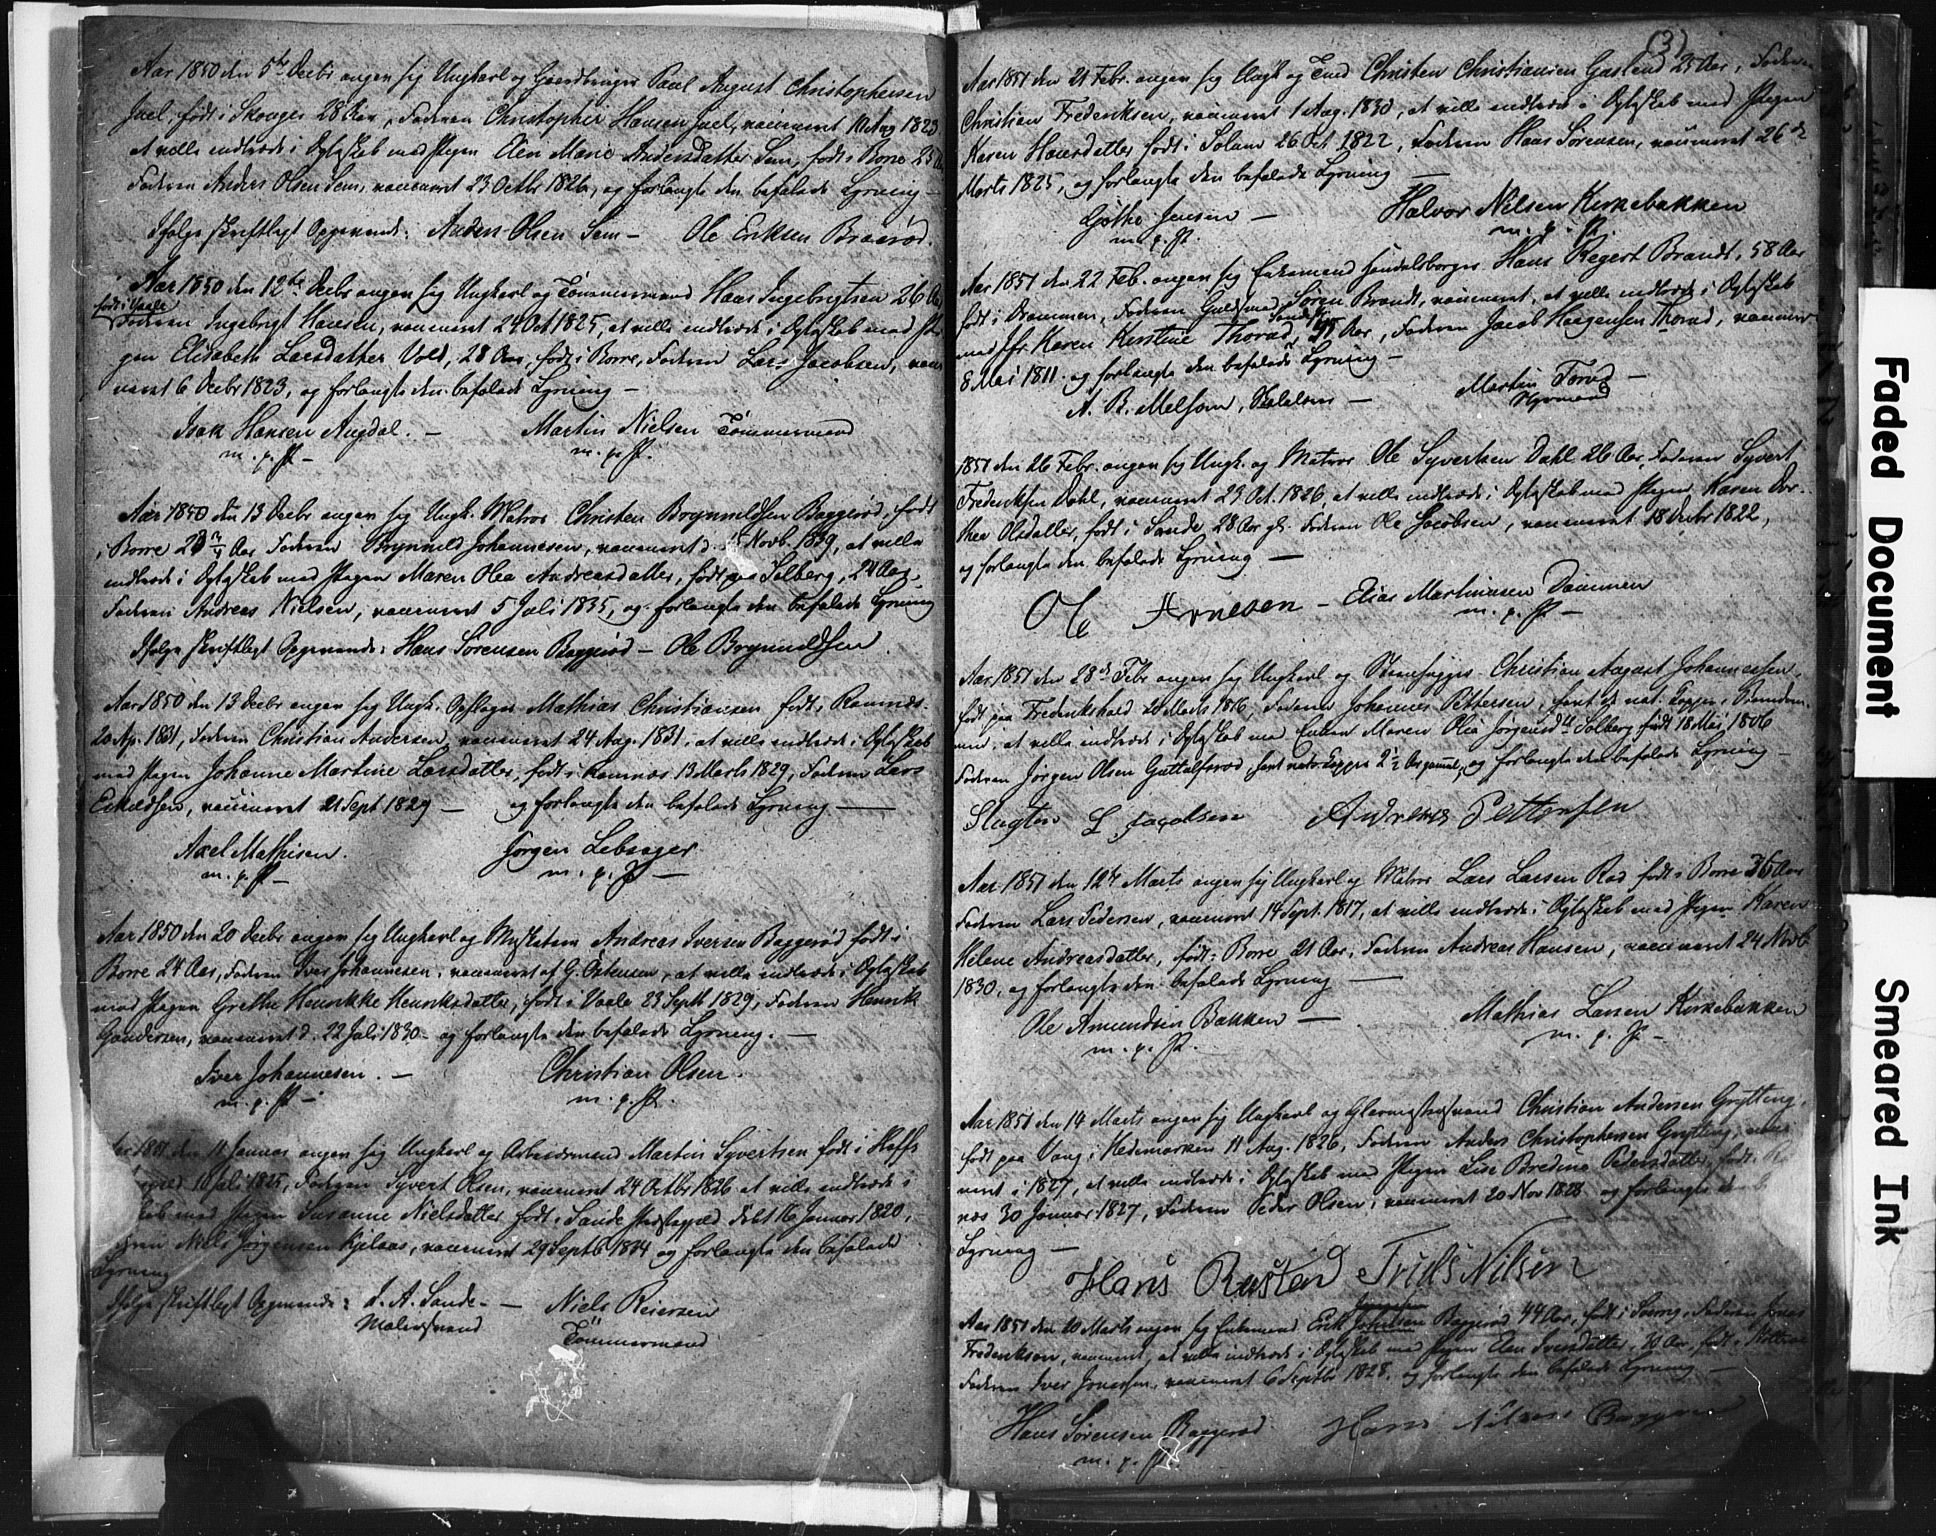 Aar 1850 den 5te Decbr angav sig Ungkarl og Gaardbruger Paul August Christophersen
Juel, født i Skouger 28 Aar, Faderen Christopher Hansen Juel, vaccineret 10 Aug 1823
at ville indtræde i Ægteskab med Pigen Elen Marie Andersdatter Sem, født i Borre 25
Faderen Anders Olsen Sem, vaccineret 23 Octbr 1826, og forlangte den befalede Lysning —
Ifølge skriftligt Opgivende: Anders Olsen Sem — Ole Eriksen Braarød.
Aar 1850 den 12te Decbr angav sig Ungkarl og Tømmermand Hans Ingebrigtsen 26 Aar
født i Vaale
Faderen Ingebrigt Hansen, vaccineret 29 Oct 1825, at ville indtræde i Ægteskab med Pi-
gen Elisabeth Larsdatter Vold, 28 Aar, født i Borre, Faderen Lars Jacobsen, vacci-
neret 6 Decbr 1823, og forlangte den befalede Lysning —
Isak Hansen Augdal. — Martin Nielsen Tømmermand
m. p. P. — m. p. P.
Aar 1850 den 13 Decbr angav sig Ungk. Matros Christen Brynnildsen Baggerød, født
i Borre Aar Faderen Brynnild Johannesen, vaccineret d. 15 Novb. 1839, at ville
indtræde i Ægteskab med Pigen Maren Olea Andreasdatter, født paa Solberg, 24 Aar,
Faderen Andreas Nielsen, vaccineret 5 Juli 1835, og forlangte den befalede Lysning
Ifølge skriftligt Opgivende: Hans Sørensen Baggerød — Ole Brynnildsen.
Aar 1850 den 13 Decbr angav sig Ungk. Mathias Christiansen født i Ramnæs
20 Ap. 1831, Faderen Christian Andersen, vaccineret 24 Aug. 1831, at ville indtræde i Ægteskab
med Pigen Johanne Martine Larsdatter, født i Ramnæs 13 Marts 1829, Faderen Lars
vaccineret 21 Sept 1829 — og forlangte den befalede Lysning —
Axel Mathisen. Jørgen Lebsager
m. p. P — m. p. P —
Aar 1850 den 20 Decbr angav sig Ungkarl og Andreas Iversen Baggerød født i
Borre 24 Aar, Faderen Iver Johannesen, vaccineret af G. Østensen, at ville indtræde i Ægteskab
med Pigen Grethe Henrikke Henriksdatter, født i Vaale 23 Septb 1829, Faderen Henrik
Gundersen, vaccineret d. 22 Juli 1830 og forlangte den befalede Lysning. —
Iver Johannesen. — Christian Olsen.
m. p. P — m. p. P.
Aar 1851 den 11 Januar angav sig Ungkarl og Arbeidsmand Martin Syvertsen født i Hoffs
10 Juli 1825, Faderen Syvert Olsen, vaccineret 24 Octbr 1826 at ville indtræde i
med Pigen Susanne Nielsdatter født i Sande Præstegjeld 16 Januar 1820,
Faderen Niels Jørgensen vaccineret 29 Septb 1834 og forlangte den befalede
Lysning
Ifølge skriftligt Opgivende: L. A. Sande — Niels Reiersen
Malersvend Tømmermand
(3)
Aar 1851 den 21 Febr. angav sig Ungk og Christen Christiansen Gasland 25 Aar, Faderen
Christian Frederiksen, vaccineret 1 Aug. 1830, at ville indtræde i Ægteskab med Pigen
Karen Hansdatter født i Solum 26 Oct 1822, Faderen Hans Sørensen, vaccineret 26de
Marts 1825, og forlangte den befalede Lysning —
Gjøthe Jensen — Halvor Nilsen Kirkebakken
m. p. P. m. p. P.
Aar 1851 den 22 Feb. angav sig Enkemand Handelsborger Hans Regert Brandt, 58 Aar
født i Drammen, Faderen Guldsmed Søren Brandt, vaccineret, at ville indtræde i Ægteskab
med Jfr. Karen Kirstine Thorad, 45 Aar, Faderen Jacob Haagensen Thorad, vaccineret
8 Mai 1811 og forlangte den befalede Lysning —
A. B. Melsom, — Martin Torod —
1851 den 26 Febr. angav sig Ungk. og Matros Ole Syvertsen Dahl 26 Aar, Faderen Syvert
Frederiksen Dahl, vaccineret 23 Oct. 1826 at ville indtræde i Ægteskab med Pigen Karen Dor-
thea Olsdatter, født i Sande 28 Aar gl. Faderen Ole Jacobsen, vaccineret 18 Decbr 1822,
og forlangte den befalede Lysning —
Ole Arnesen — Elias Martinusen Dammen
m. p. P —
Aar 1851 den 28de Febr angav sig Ungkarl og Steenhugger Christian August Johannessen,
født paa Frederikshald 20 Marts 1816, Faderen Johannes Pettersen, havt de nat. Kopper i
at ville indtræde i Ægteskab med Enken Maren Olea Jørgensdtr Solberg født 18 Mai 1806
Faderen Jørgen Olsen havt nat. Kopper 2½ Aar gammel, og forlangte den befalede Lysning —
Slagter L Jacobsen Andreas Pettersen
Aar 1851 den 12te Marts angav sig Ungkarl og Matros Lars Larsen Rød født i Borre 36 Aar
Faderen Lars Pedersen, vaccineret 14 Sept. 1817, at ville indtræde i Ægteskab med Pigen Karen
Helene Andreasdatter, født i Borre 21 Aar, Faderen Andreas Hansen, vaccineret 24 Novb
1830, og forlangte den befalede Lysning —
Ole Amundsen Bakken — Mathias Larsen Kirkebakken
m. p. P. m. p. P —
Aar 1851 den 14 Marts angav sig Ungkarl og Glarmestersvend Christian Andersen Grytting,
født paa Vang i Hedemarken 11 Aug. 1826, Faderen Anders Christophersen Grytting, vacci-
neret i 1827, at ville indtræde i Ægteskab med Pigen Lise Bredine Pedersdatter, født i Ram-
næs 30 Januar 1827, Faderen Peder Olsen, vaccineret 20 Nov 1828 og forlangte den
Lysning —
Hans Rasten Truls Nilsen
Aar 1851 den 20 Marts angav sig Enkemand Erik Baggerød 44 Aar, født i Faderen Jonas
Frederiksen, vaccineret, at ville indtræde i Ægteskab med Pigen Elen Iversdatter, 30 Aar, født i
Faderen Iver Jonassen, vaccineret 6 Septbr 1828, og forlangte den befalede Lysning —
Hans Sørensen Baggerød Hans Nilsen
m. p. P.
Faded Document
Smeared Ink